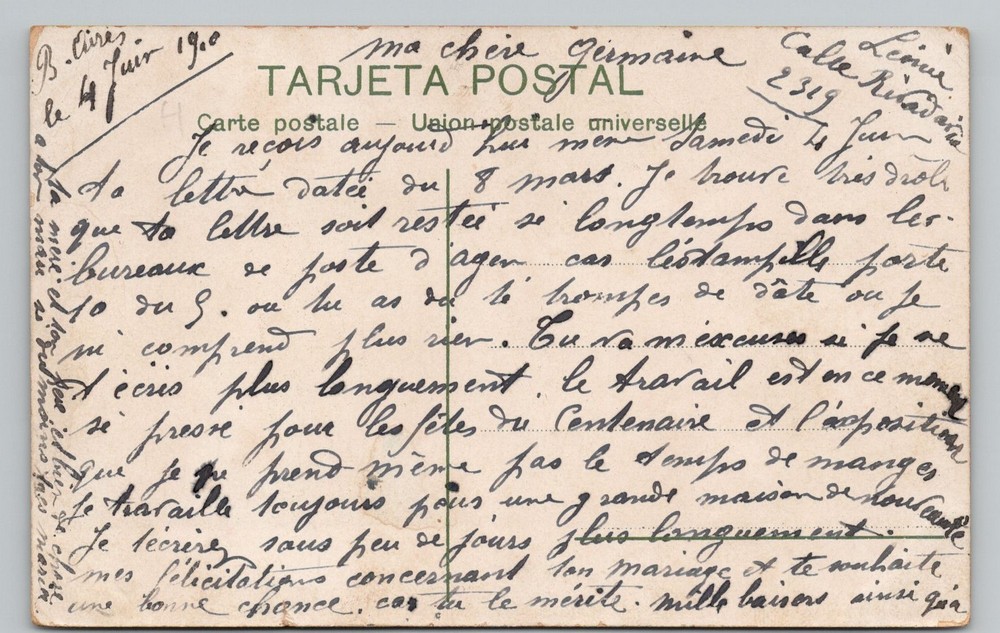 B. Aires
le 4 Juin 1910
ma chère Germaine
Léonie
Calle Rivadavia
2319
TARJETA POSTAL
Carte postale — Union postale universelle
Je reçois aujourd hui même Samedi 4 Juin
ta lettre datée du 8 mars. Je trouve très drôle
que ta lettre soit restée si longtemps dans les
bureaux de poste d'agen car l'éstampille porte
10 du 5. ou tu as du te trompes de dâte ou je
ni comprend plus rien. Tu va m'excuses si je ne
t'écris plus longuement. le travail est en ce moment
si pressé pour les fêtes du Centenaire et l'éxposition
que je ne prend même pas le temps de manges
Je travaille toujours pour une grande maison de nouveauté
Je t'écrirez sous peu de jours plus longuement.
mes félicitations concernant ton mariage et te souhaite
une bonne chance. car tu le mérite. mille baisers ainsi qu'a
ta mère et ton
a ton mari